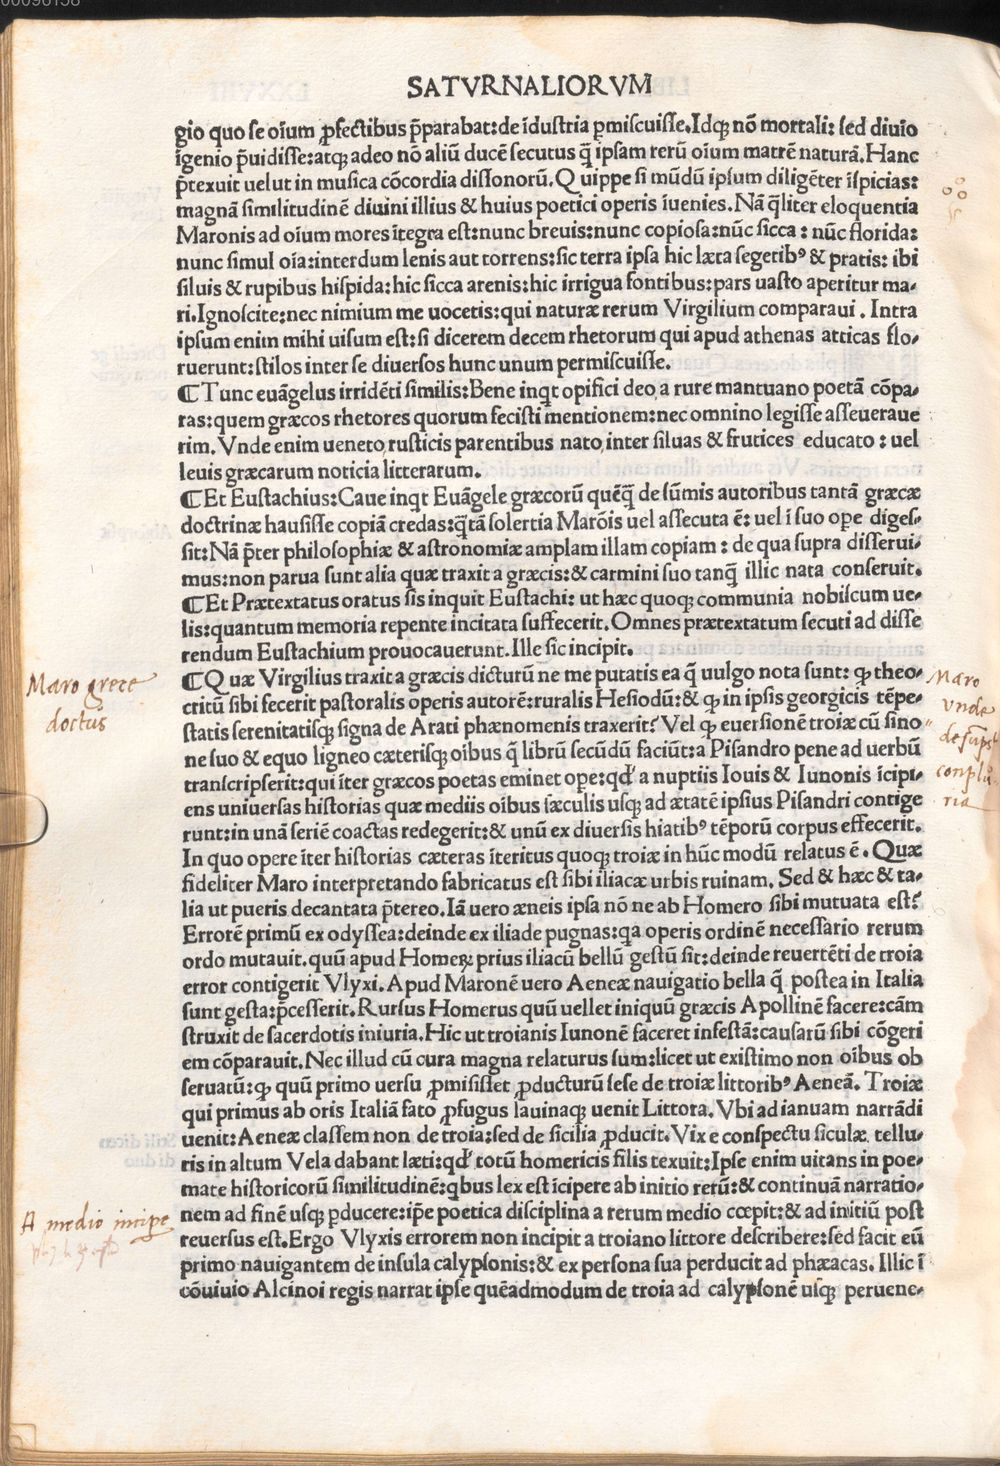 00096158
SATVRNALIORVM
gio quo se oīum ꝓfectibus p̄parabat:de īdustria ꝑmiscuisse.Idqꝫ nō mortali: sed diuīo
īgenio p̄uidisse:atqꝫ adeo nō aliū ducē secutus q̄ ipsam rerū oīum matrē naturā.Hanc
p̄texuit uelut in musica cōcordia dissonorū.Quippe si mūdū ipsum diligēter īspicias:
magnā similitudinē diuini illius & huius poetici operis iuenies.Nā q̄liter eloquentia
Maronis ad oīum mores ītegra est:nunc breuis:nunc copiosa:nūc sicca : nūc florida:
nunc simul oīa:interdum lenis aut torrens:sic terra ipsa hic læta segetibꝰ & pratis: ibi
siluis & rupibus hispida:hic sicca arenis:hic irrigua fontibus:pars uasto aperitur ma-
ri.Ignoscite:nec nimium me uocetis:qui naturæ rerum Virgilium comparaui . Intra
ipsum enim mihi uisum est:si dicerem decem rhetorum qui apud athenas atticas flo-
ruerunt:stilos inter se diuersos hunc unum permiscuisse.
¶Tunc euāgelus irridēti similis:Bene inqt opifici deo,a rure mantuano poetā cōpa-
ras:quem græcos rhetores quorum fecisti mentionem:nec omnino legisse asseueraue
rim. Vnde enim ueneto,rusticis parentibus nato,inter siluas & frutices educato : uel
leuis græcarum noticia litterarum.
¶Et Eustachius:Caue inqt Euāgele græcorū quēq̄ de sūmis autoribus tantā græcæ
doctrinæ hausisse copiā credas:q̄tā solertia Marōis uel assecuta ē: uel ī suo ope diges-
sit:Nā p̄ter philosophiæ & astronomiæ amplam illam copiam : de qua supra disserui-
mus:non parua sunt alia quæ traxit a græcis:& carmini suo tanq̄ illic nata conseruit.
¶Et Prætextatus oratus sis inquit Eustachi: ut hæc quoqꝫ communia nobiscum ue-
lis:quantum memoria repente incitata suffecerit.Omnes prætextatum secuti ad disse
rendum Eustachium prouocauerunt.Ille sic incipit.
¶Quæ Virgilius traxit a græcis dicturū ne me putatis ea q̄ uulgo nota sunt: ꝙ theo-
critū sibi fecerit pastoralis operis autorē:ruralis Hesiodū:& ꝙ in ipsis georgicis tēpe-
statis serenitatisqꝫ signa de Arati phænomenis traxerit? Vel ꝙ euersionē troiæ cū sino
ne suo & equo ligneo cæterisqꝫ oībus q̄ librū secūdū faciūt:a Pisandro pene ad uerbū
transcripserit:qui īter græcos poetas eminet ope:qd' a nuptiis Iouis & Iunonis īcipi-
ens uniuersas historias quæ mediis oībus sæculis usqꝫ ad ætatē ipsius Pisandri contige
runt:in unā seriē coactas redegerit:& unū ex diuersis hiatibꝰ tēporū corpus effecerit.
In quo opere īter historias cæteras īteritus quoqꝫ troiæ in hūc modū relatus ē. Quæ
fideliter Maro interpretando fabricatus est sibi iliacæ urbis ruinam. Sed & hæc & ta-
lia ut pueris decantata p̄tereo.Iā uero æneis ipsa nō ne ab Homero sibi mutuata est?
Errorē primū ex odyssea:deinde ex iliade pugnas:qa operis ordinē necessario rerum
ordo mutauit.quū apud Homeꝝ prius iliacū bellū gestū sit:deinde reuertēti de troia
error contigerit Vlyxi.Apud Maronē uero Aeneæ nauigatio bella q̄ postea in Italia
sunt gesta:p̄cesserit.Rursus Homerus quū uellet iniquū græcis Apollinē facere:cām
struxit de sacerdotis iniuria.Hic ut troianis Iunonē faceret infestā:causarū sibi cōgeri
em cōparauit.Nec illud cū cura magna relaturus sum:licet ut existimo non oībus ob
seruatū:ꝙ quū primo uersu ꝓmisisset ꝓducturū sese de troiæ littoribꝰ Aeneā. Troiæ
qui primus ab oris Italiā fato ꝓfugus lauinaqꝫ uenit Littora. Vbi ad ianuam narrādi
uenit:Aeneæ classem non de troia:sed de sicilia ꝓducit. Vix e conspectu siculæ tellu-
ris in altum Vela dabant læti:qd' totū homericis filis texuit:Ipse enim uitans in poe-
mate historicorū similitudinē:qbus lex est īcipere ab initio rerū:& continuā narratio-
nem ad finē usqꝫ ꝑducere:ip̄e poetica disciplina a rerum medio cœpit:& ad initiū post
reuersus est.Ergo Vlyxis errorem non incipit a troiano littore describere:sed facit eū
primo nauigantem de insula calypsonis:& ex persona sua perducit ad phæacas. Illic ī
cōuiuio Alcinoi regis narrat ipse quēadmodum de troia ad calypsonē usqꝫ peruene-
Maro grece
doctus
Maro
vnde
conplu
ria
A medio incipe